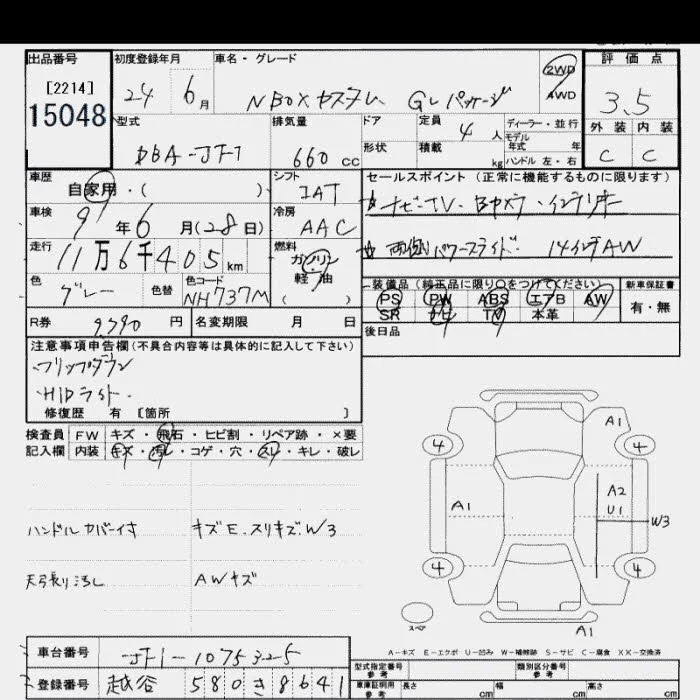 出品番号 初度登録年月 車名・グレード 2WD 評価点
[2214] 24 6月 NBOXカスタム GLパッケージ AWD 3.5
15048 型式 排気量 ドア 定員 4人 ディーラー・並行 外装 内装
モデル
DBA-JF1 660cc 形状 積載 kg 年式 年 ハンドル 左・右 C C
車歴 自家用・( ) シフト IAT セールスポイント (正常に機能するものに限ります)
車検 91年6月(28日) 冷房 AAC ☆ナビ・TV・Bカメラ・インテリキー
走行 11万6千405km 燃料 ガソリン 軽油 ( ) ☆両側パワースライド 14インチAW
色 グレー 色替 色コード NH737M 装備品 (純正品に限り○をつけてください) 新車保証書
PS PW ABS エアB AW 有・無
SR ナビ TV 本革
R券 9390円 名変期限 月 日 後日品
注意事項申告欄(不具合内容等は具体的に記入して下さい)
・フリップダウン
・HIDライト・
修復歴 有 [箇所 ]
検査員 FW キズ・飛石・ヒビ割・リペア跡・×要
記入欄 内装 キズ・汚れ・コゲ・穴・スレ・キレ・破レ
A1
4 4
A1 A2
U1
W3
ハンドルカバー付 キズE.スリキズ.W3
天張り汚し AWキズ
4 4
スペア
A1
A-キズ E-エクボ U-凹み W-補修跡 S-サビ C-腐食 XX-交換済
車台番号 JF1-1075325
型式指定番号 参考 類別区分番号 参考
登録番号 越谷 580さ8641
車庫証明用 参考 長さ cm 幅 cm 高さ cm